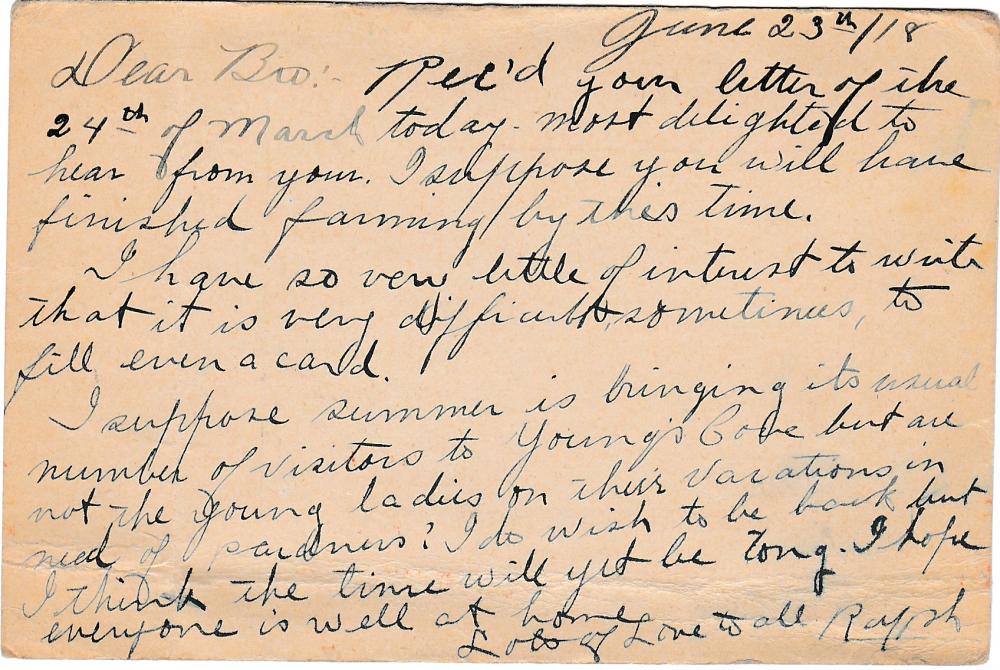 June 23th/18
Dear Bro:- Rec'd your letter of the
24th of March today. most delighted to
hear from you. I suppose you will have
finished farming by this time.
I have so very little of interest to write
that it is very difficult, sometimes, to
fill even a card.
I suppose summer is bringing its usual
number of visitors to Young's Cove but are
not the young ladies on their vacations in
need of pardners? I do wish to be back but
I think the time will yet be long. I hope
everyone is well at home
Lots of Love to all Ralph